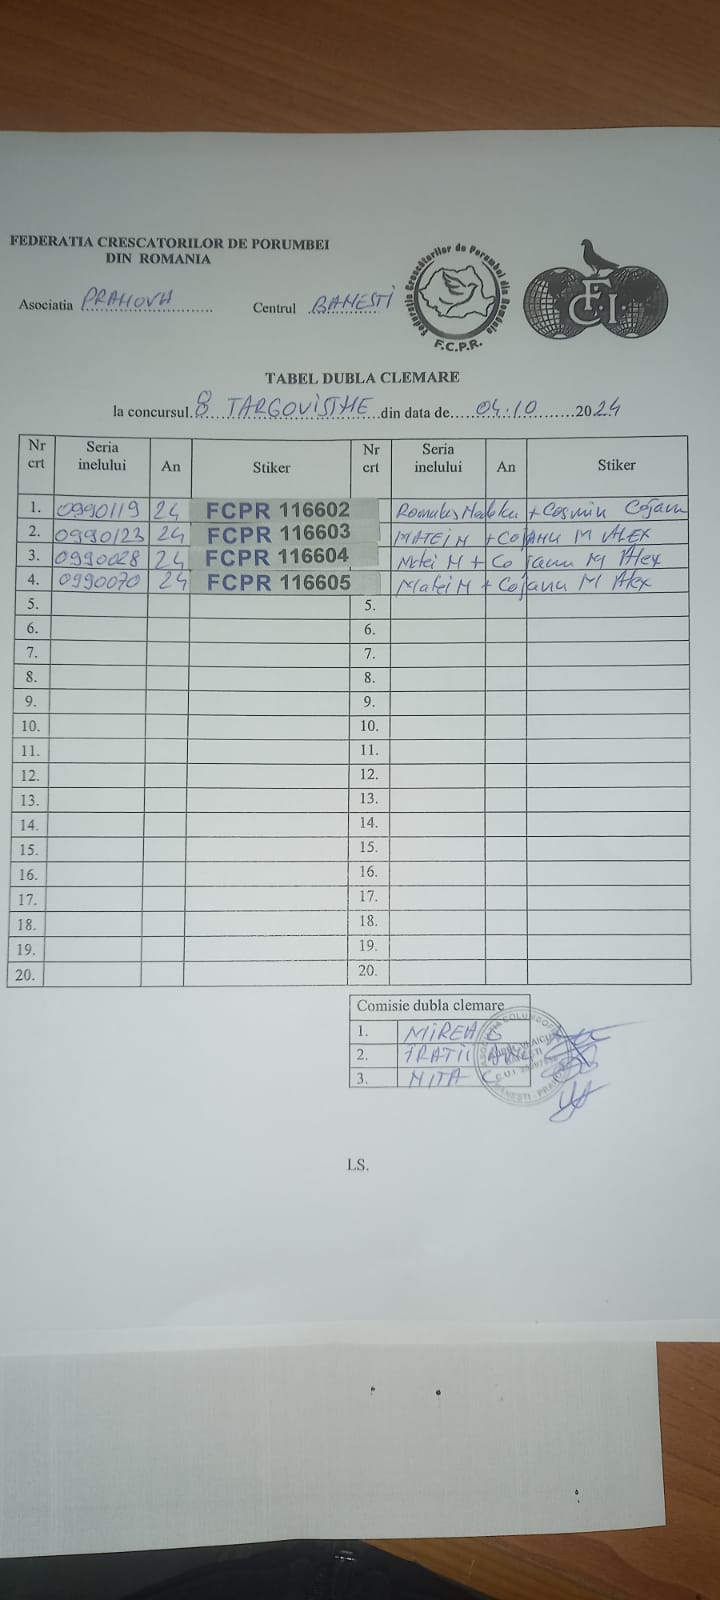 FEDERATIA CRESCATORILOR DE PORUMBEI
DIN ROMANIA
Asociatia PRAHOVA Centrul BANESTI
Federatia Crescătorilor de Porumbei din România
F.C.P.R.
FCI
TABEL DUBLA CLEMARE
la concursul. 8 TARGOVISTHE din data de 04.10 2024
Nr crt Seria inelului An Stiker Nr crt Seria inelului An Stiker
1. 0990119 24 FCPR 116602 Romulus + Cosmin Cojanu
2. 0990123 24 FCPR 116603 MATEI M + COJANU M ALEX
3. 0990028 24 FCPR 116604 Matei M + Cojanu M Alex
4. 0990070 24 FCPR 116605 Matei M + Cojanu M Alex
5. 5.
6. 6.
7. 7.
8. 8.
9. 9.
10. 10.
11. 11.
12. 12.
13. 13.
14. 14.
15. 15.
16. 16.
17. 17.
18. 18.
19. 19.
20. 20.
Comisie dubla clemare
1. MIREA
2. FRATII
3. NITA C
LS.